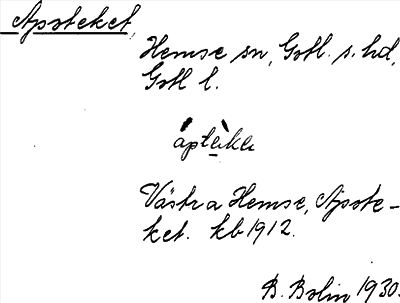 Apoteket,
Hemse sn, Gotl. s. hd,
Gotl l.
Västra Hemse, Apote-
ket. kb 1912.
B. Bolin 1930.